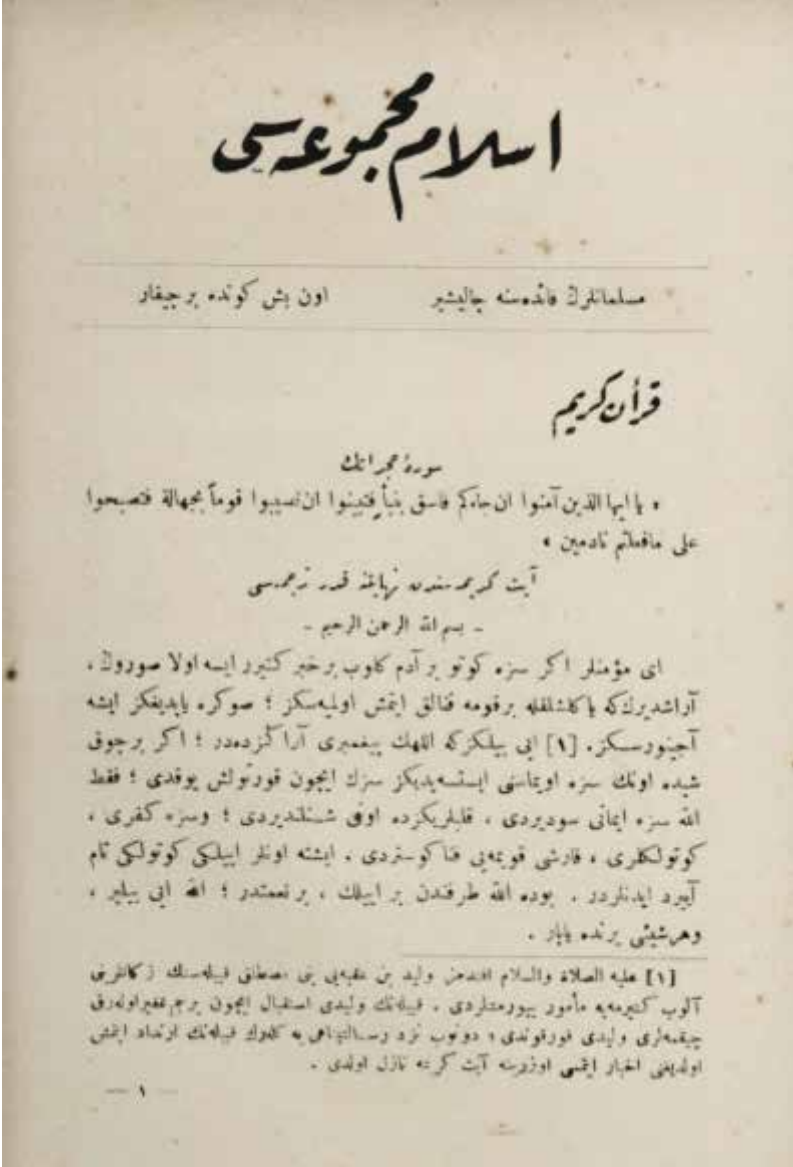 اسلام مجموعه‌سی
مسلمانلرڭ فائده‌سنه چالیشیر اون بش كونده بر چیقار
قرأن كریم
سورهٔ حجراتك
« یا ایها الذین آمنوا ان جاءكم فاسق بنبأٍ فتبینوا ان تصیبوا قوماً بجهالة فتصبحوا
علی مافعلتم نادمین »
آیت كریمه‌سندن نهایتنه قدر ترجمه‌سی
ـ بسم الله الرحمن الرحیم ـ
ای مؤمنلر اكر سزه كوتو بر آدم كلوب بر خبر كتیرر ایسه اولا صوروڭ ،
آراشدیرڭ كه یاكلشلقله بر قومه فنالق ایتمش اولمیه‌سكز ؛ صوكره یاپدیغكز ایشه
آجینورسكز. [۱] ایی بیلكز كه اللهك پیغمبری آراكزده‌در ؛ اكر بر چوق
شیده اونك سزه اویماسنی ایسته‌یدیكز سزك ایچون قورتولش یوقدی ؛ فقط
الله سزه ایمانی سودیردی ، قلبلریكزده اونی شنلندیردی ؛ وسزه كفری ،
كوتولكلری ، قارشی قویمه‌یی فنا كوستردی . ایشته اونلر اییلكی كوتولكی تام
آییرد ایدنلردر . بوده الله طرفندن بر اییلك ، بر نعمتدر ؛ الله ایی بیلیر ،
وهر شیئی یرنده یاپار .
[۱] علیه الصلاة والسلام افندمز ولید بن عقبه‌یی بنی مصطلق قبیله‌سنك زكاتلرینی
آلوب كتیرمه‌یه مأمور بیورمشلردی . قبیله‌نك ولیدی استقبال ایچون بر جم غفیر اوله‌رق
چیقمه‌لری ولیدی قورقوتدی ؛ دونوب نزد رسالتپناهی‌یه كله‌رك قبیله‌نك ارتداد ایتمش
اولدیغنی اخبار ایتمسی اوزرینه آیت كریمه نازل اولدی .
— ۱ —